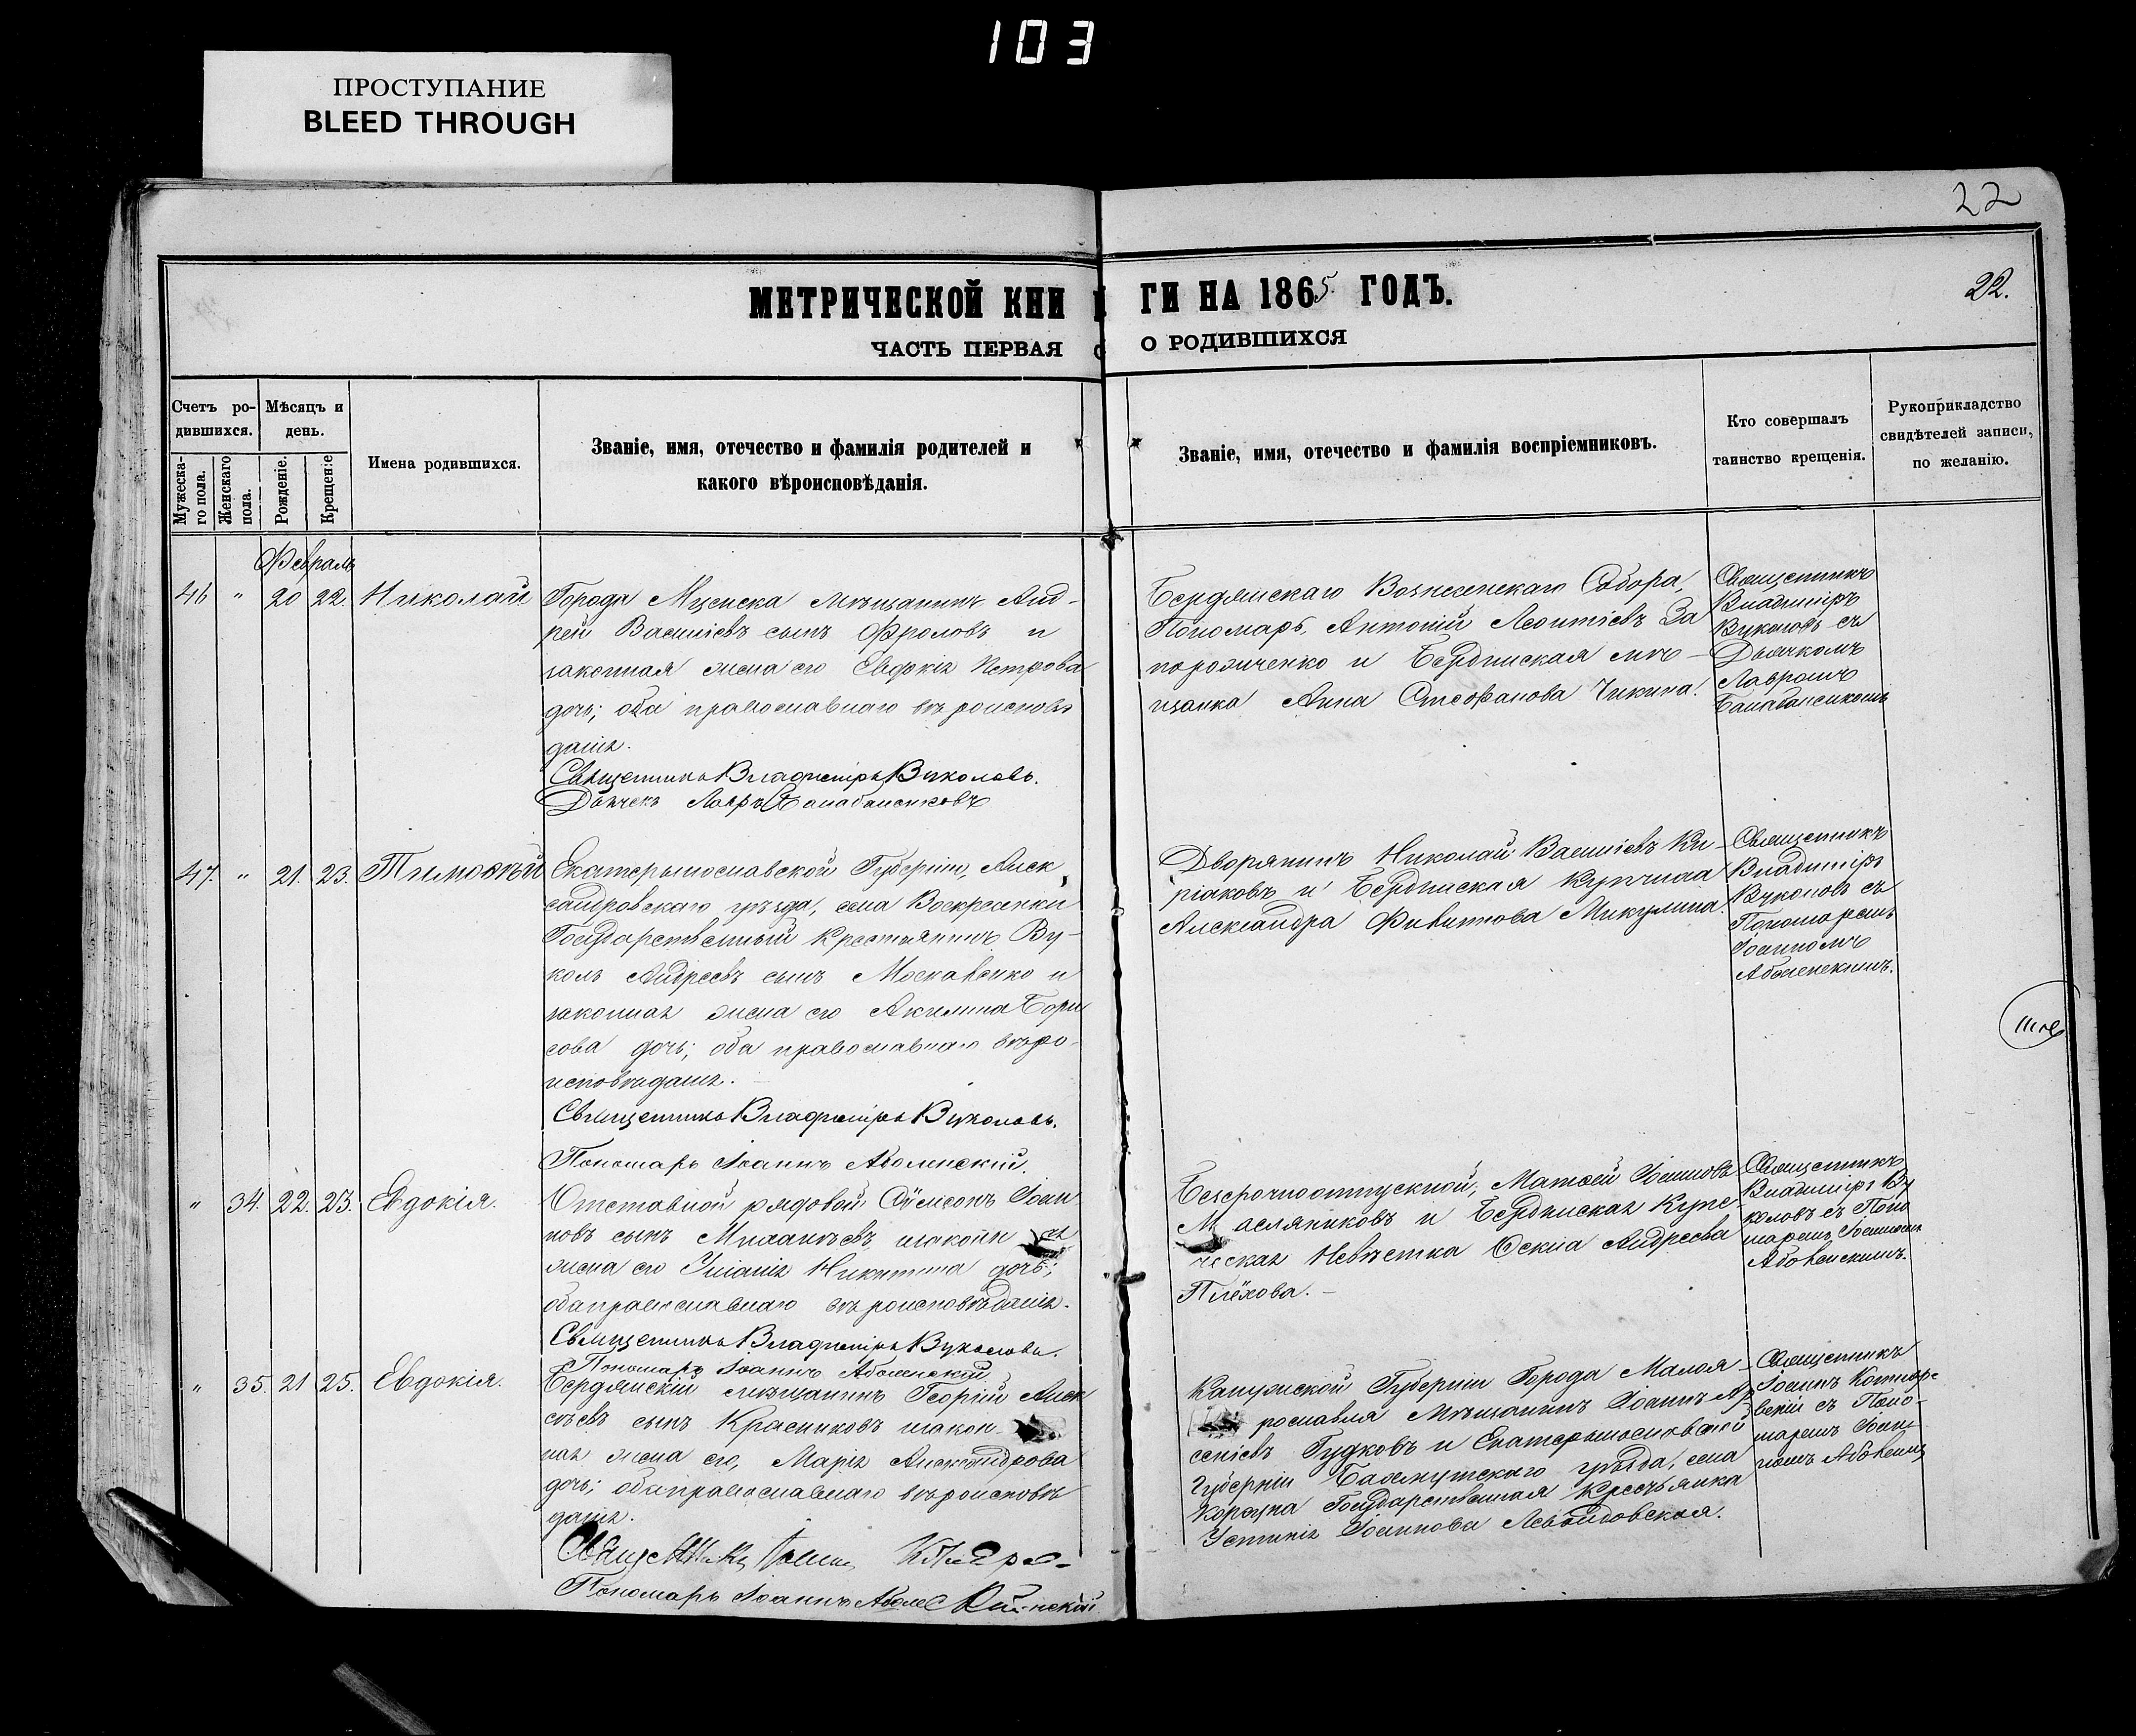 103
ПРОСТУПАНИЕ
BLEED THROUGH
22
МЕТРИЧЕСКОЙ КНИ ГИ НА 1865. ГОДЪ.
22.
ЧАСТЬ ПЕРВАЯ О РОДИВШИХСЯ
Счетъ ро-
дившихся.
Мѣсяцъ и
день.
Мужеска-
го пола.
Женскаго
пола.
Рожденіе.
Крещеніе
Имена родившихся.
Званіе, имя, отечество и фамилія родителей и
какого вѣроисповѣданія.
Званіе, имя, отечество и фамилія воспріемниковъ.
Кто совершалъ
таинство крещенія.
Рукоприкладство
свидѣтелей записи,
по желанію.
Февраль
46 " 20 22. Николай
Города Мценска мѣщанинъ Анд-
рей Василіевъ сынъ Фроловъ и
законная жена его Евдокія Петрова
дочь; оба православнаго вѣроисповѣ
данія.
Священникъ Владиміръ Вуколовъ.
Дьячекъ Лавръ
Бердянскаго Вознесенскаго Собора,
Пономарь, Антоній Леонтіевъ За
порожченко и Бердянская мѣ-
щанка Анна Стефанова Чикина.
Священникъ
Владиміръ
Вуколовъ съ
Дьячкомъ
Лавромъ
47. " 21. 23. Тимофѣй
Екатеринославской Губерніи, Алек
сандровскаго уѣзда, села Воскресенки
Государственный крестьянинъ Ву-
колъ Андреевъ сынъ Москавенко и
законная жена его Акилина Бори
сова дочь; оба православнаго вѣро-
исповѣданія.
Священникъ Владиміръ Вуколовъ.
Пономарь Іоаннъ Аболенскій.
Дворянинъ Николай Василіевъ Ки-
ріаковъ и Бердянская Купчиха
Александра Филиппова Микулина.
Священникъ
Владиміръ
Вуколовъ съ
Пономаремъ
Іоанномъ
Аболенскимъ.
" 34. 22. 23. Евдокія.
Отставной рядовой Сѵмеонъ Іоан
новъ сынъ и законн ая
жена его Іуліанія Никитина дочь;
оба православнаго вѣроисповѣданія.
Священникъ Владиміръ Вуколовъ.
Пономарь Іоаннъ Аболенскій.
Безсрочноотпускной, Матѳей Іоанновъ
Масляниковъ и Бердянская Купе-
ческая Невѣстка Андреева
Плёхова.
Священникъ
Владиміръ Ву
коловъ съ Поно
маремъ Іоанномъ
Аболенскимъ.
" 35. 21 25. Евдокія.
Бердянскій мѣщанинъ Георгій Алек
сѣевъ сынъ Красниковъ и закон-
ная жена его, Марія Александрова
дочь; оба православнаго вѣроисповѣ
данія.
Пономарь Іоаннъ
Калужской Губерніи Города Малоя-
рославля Мѣщанинъ Іоаннъ Ар
сеніевъ Гудковъ и Екатеринославской
Губерніи Бахмутскаго уѣзда, села
Государственная Крестьянка
Устинія Іоаннова
Священникъ
Іоаннъ
съ Поно-
маремъ Іоан
номъ